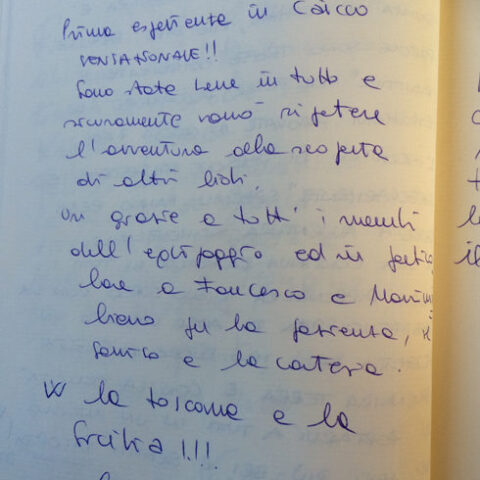 Prima esperienza in Caicco
SENSAZIONALE!!
Sono stata bene in tutto e
sicuramente vorrò ripetere
l'avventura alla scoperta
di altri lidi.
Un grazie a tutti i membri
dell'equipaggio ed in partico
lare a Francesco e
per la pazienza, il
sorriso e la
W la toscana e la
Sicilia !.!!